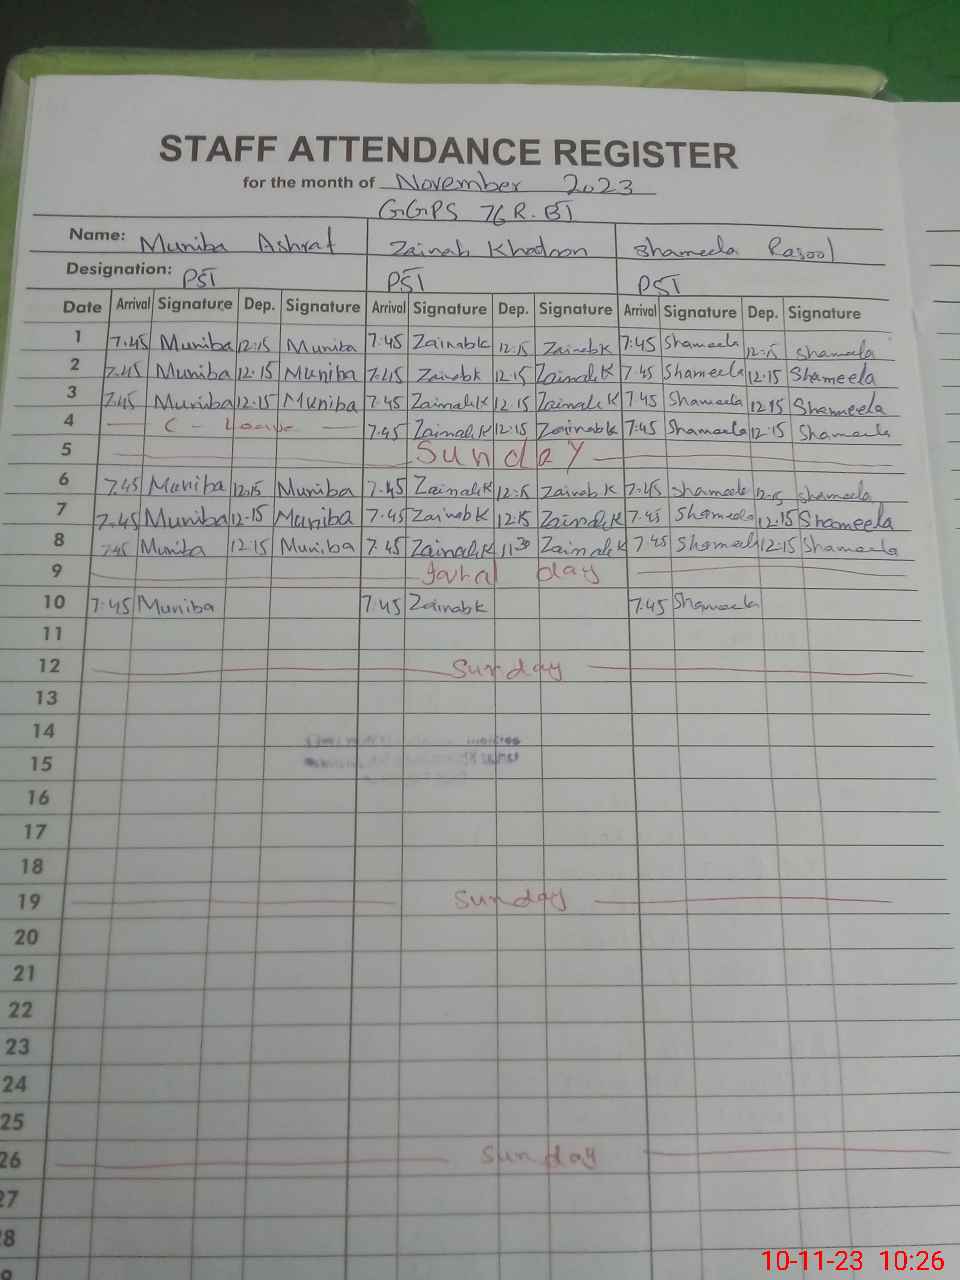 STAFF ATTENDANCE REGISTER
for the month of November 2023
GGPS 76 R.BI
Name: Muniba Ashraf Zainab Khatoon Shameela Rasool
Designation: PST PST PST
Date Arrival Signature Dep. Signature Arrival Signature Dep. Signature Arrival Signature Dep. Signature
1 7.45 Muniba 12.15 Muniba 7:45 Zainabk 12.15 Zainabk 7:45 Shameela 12.15 Shameela
2 7.45 Muniba 12.15 Muniba 7.45 Zainabk 12.15 Zainabk 7.45 Shameela 12.15 Shameela
3 7.45 Muniba 12.15 Muniba 7.45 Zainabk 12.15 Zainabk 7.45 Shameela 12.15 Shameela
4 C - Leave 7.45 Zainabk 12.15 Zainabk 7.45 Shameela 12.15 Shameela
5 Sunday
6 7.45 Muniba 12.15 Muniba 7.45 Zainabk 12.15 Zainabk 7.45 Shameela 12.15 Shameela
7 7.45 Muniba 12.15 Muniba 7.45 Zainabk 12.15 Zainabk 7.45 Shameela 12.15 Shameela
8 7.45 Muniba 12.15 Muniba 7.45 Zainabk 11.30 Zainabk 7.45 Shameela 12.15 Shameela
9 day
10 7.45 Muniba 7.45 Zainabk 7.45 Shameela
11
12 Sunday
13
14
15
16
17
18
19 Sunday
20
21
22
23
24
25
26 Sunday
27
28
10-11-23 10:26